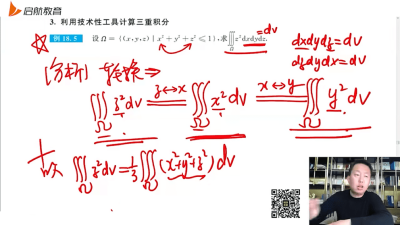 启航教育
3. 利用技术性工具计算三重积分
例 18.5 设 Ω = {(x,y,z) | x² + y² + z² ≤ 1}, 求∭_Ω z²dxdydz.
= dv
dxdydz = dv
dzdydx = dv
[分析] 轮换 ⇒
∭_Ω z²dv ══(z↔x)══ ∭_Ω x²dv ══(x↔y)══ ∭_Ω y²dv
故 ∭_Ω z²dv = 1/3 ∭_Ω (x²+y²+z²) dv